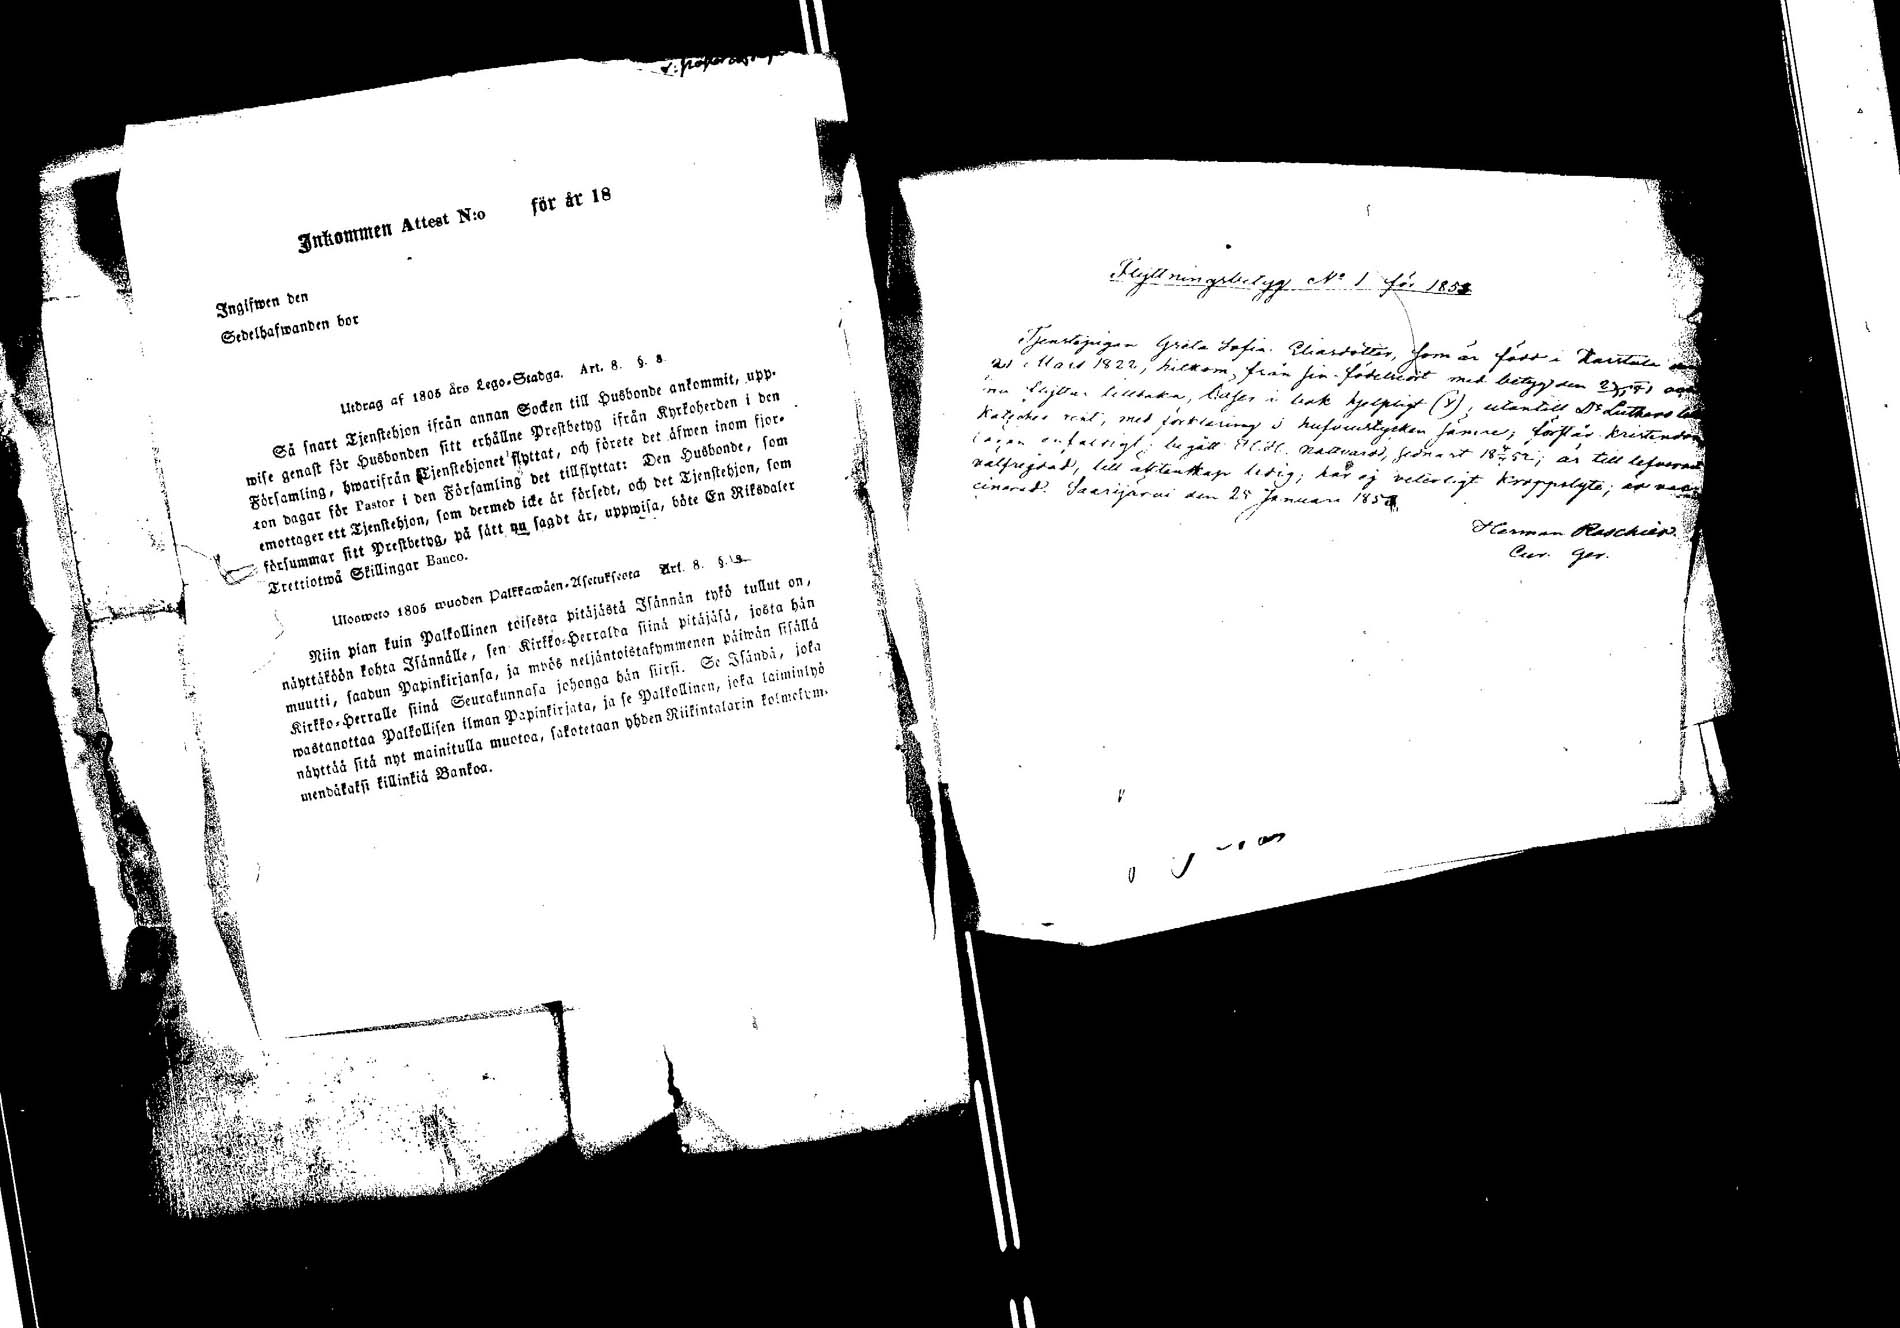 Inkommen Attest N:o för år 18
Ingifwen den
Sedelhafwanden bor
Utdrag af 1805 års Lego-Stadga. Art. 8. §. 2.
Så snart Tjenstehjon ifrån annan Socken till Husbonde ankommit, upp-
wise genast för Husbonden sitt erhållne Prestbetyg ifrån Kyrkoherden i den
Församling, hwarifrån Tjenstehjonet flyttat, och förete det äfwen inom fjor-
ton dagar för Pastor i den Församling det tillflyttat: Den Husbonde, som
emottager ett Tjenstehjon, som dermed icke är försedt, och det Tjenstehjon, som
försummar sitt Prestbetyg, på sätt nu sagdt är, uppwisa, böte En Riksdaler
Trettiotwå Skillingar Banco.
Ulosweto 1805 wuoden Palkkawäen-Asetuksesta Art. 8. §.
Niin pian kuin Palkollinen toisesta pitäjästä Isännän tykö tullut on,
näyttäköön kohta Isännälle, sen Kirkko-Herralda siinä pitäjäsä, josta hän
muutti, saadun Papinkirjansa, ja myös neljäntoistakymmenen päiwän sisällä
Kirkko-Herralle siinä Seurakunnasa johonga hän siirsi. Se Isändä, joka
wastanottaa Palkollisen ilman Papinkirjata, ja se Palkollinen, joka laiminlyö
näyttää sitä nyt mainitulla muotoa, sakotetaan yhden Riikintalarin kolmekym-
mendäkaksi killinkiä Bankoa.
Flyttningsbetyg No 1 för 1853
Tjenstepigan Greta Sofia Eliasdotter, som är född i Karstula
Mars 1822, hitkom från sin födelseort med betyg den
nu flyttar tillbaka, läser i bok hjelpligt (y), utantill Dr Luthers
Kateches rent, med förklaring 3 hufvudstycken jämte; förstår kristendom
enfaldigt; begått H.H. Nattvard, sednast 52; är till lefvernet
välfrejdad, till äktenskap ledig; har ej veterligt kroppslyte; är vac-
cinerad. Saarijärvi den 28 Januari 1853
Herman Roschier
Cur. Ger.